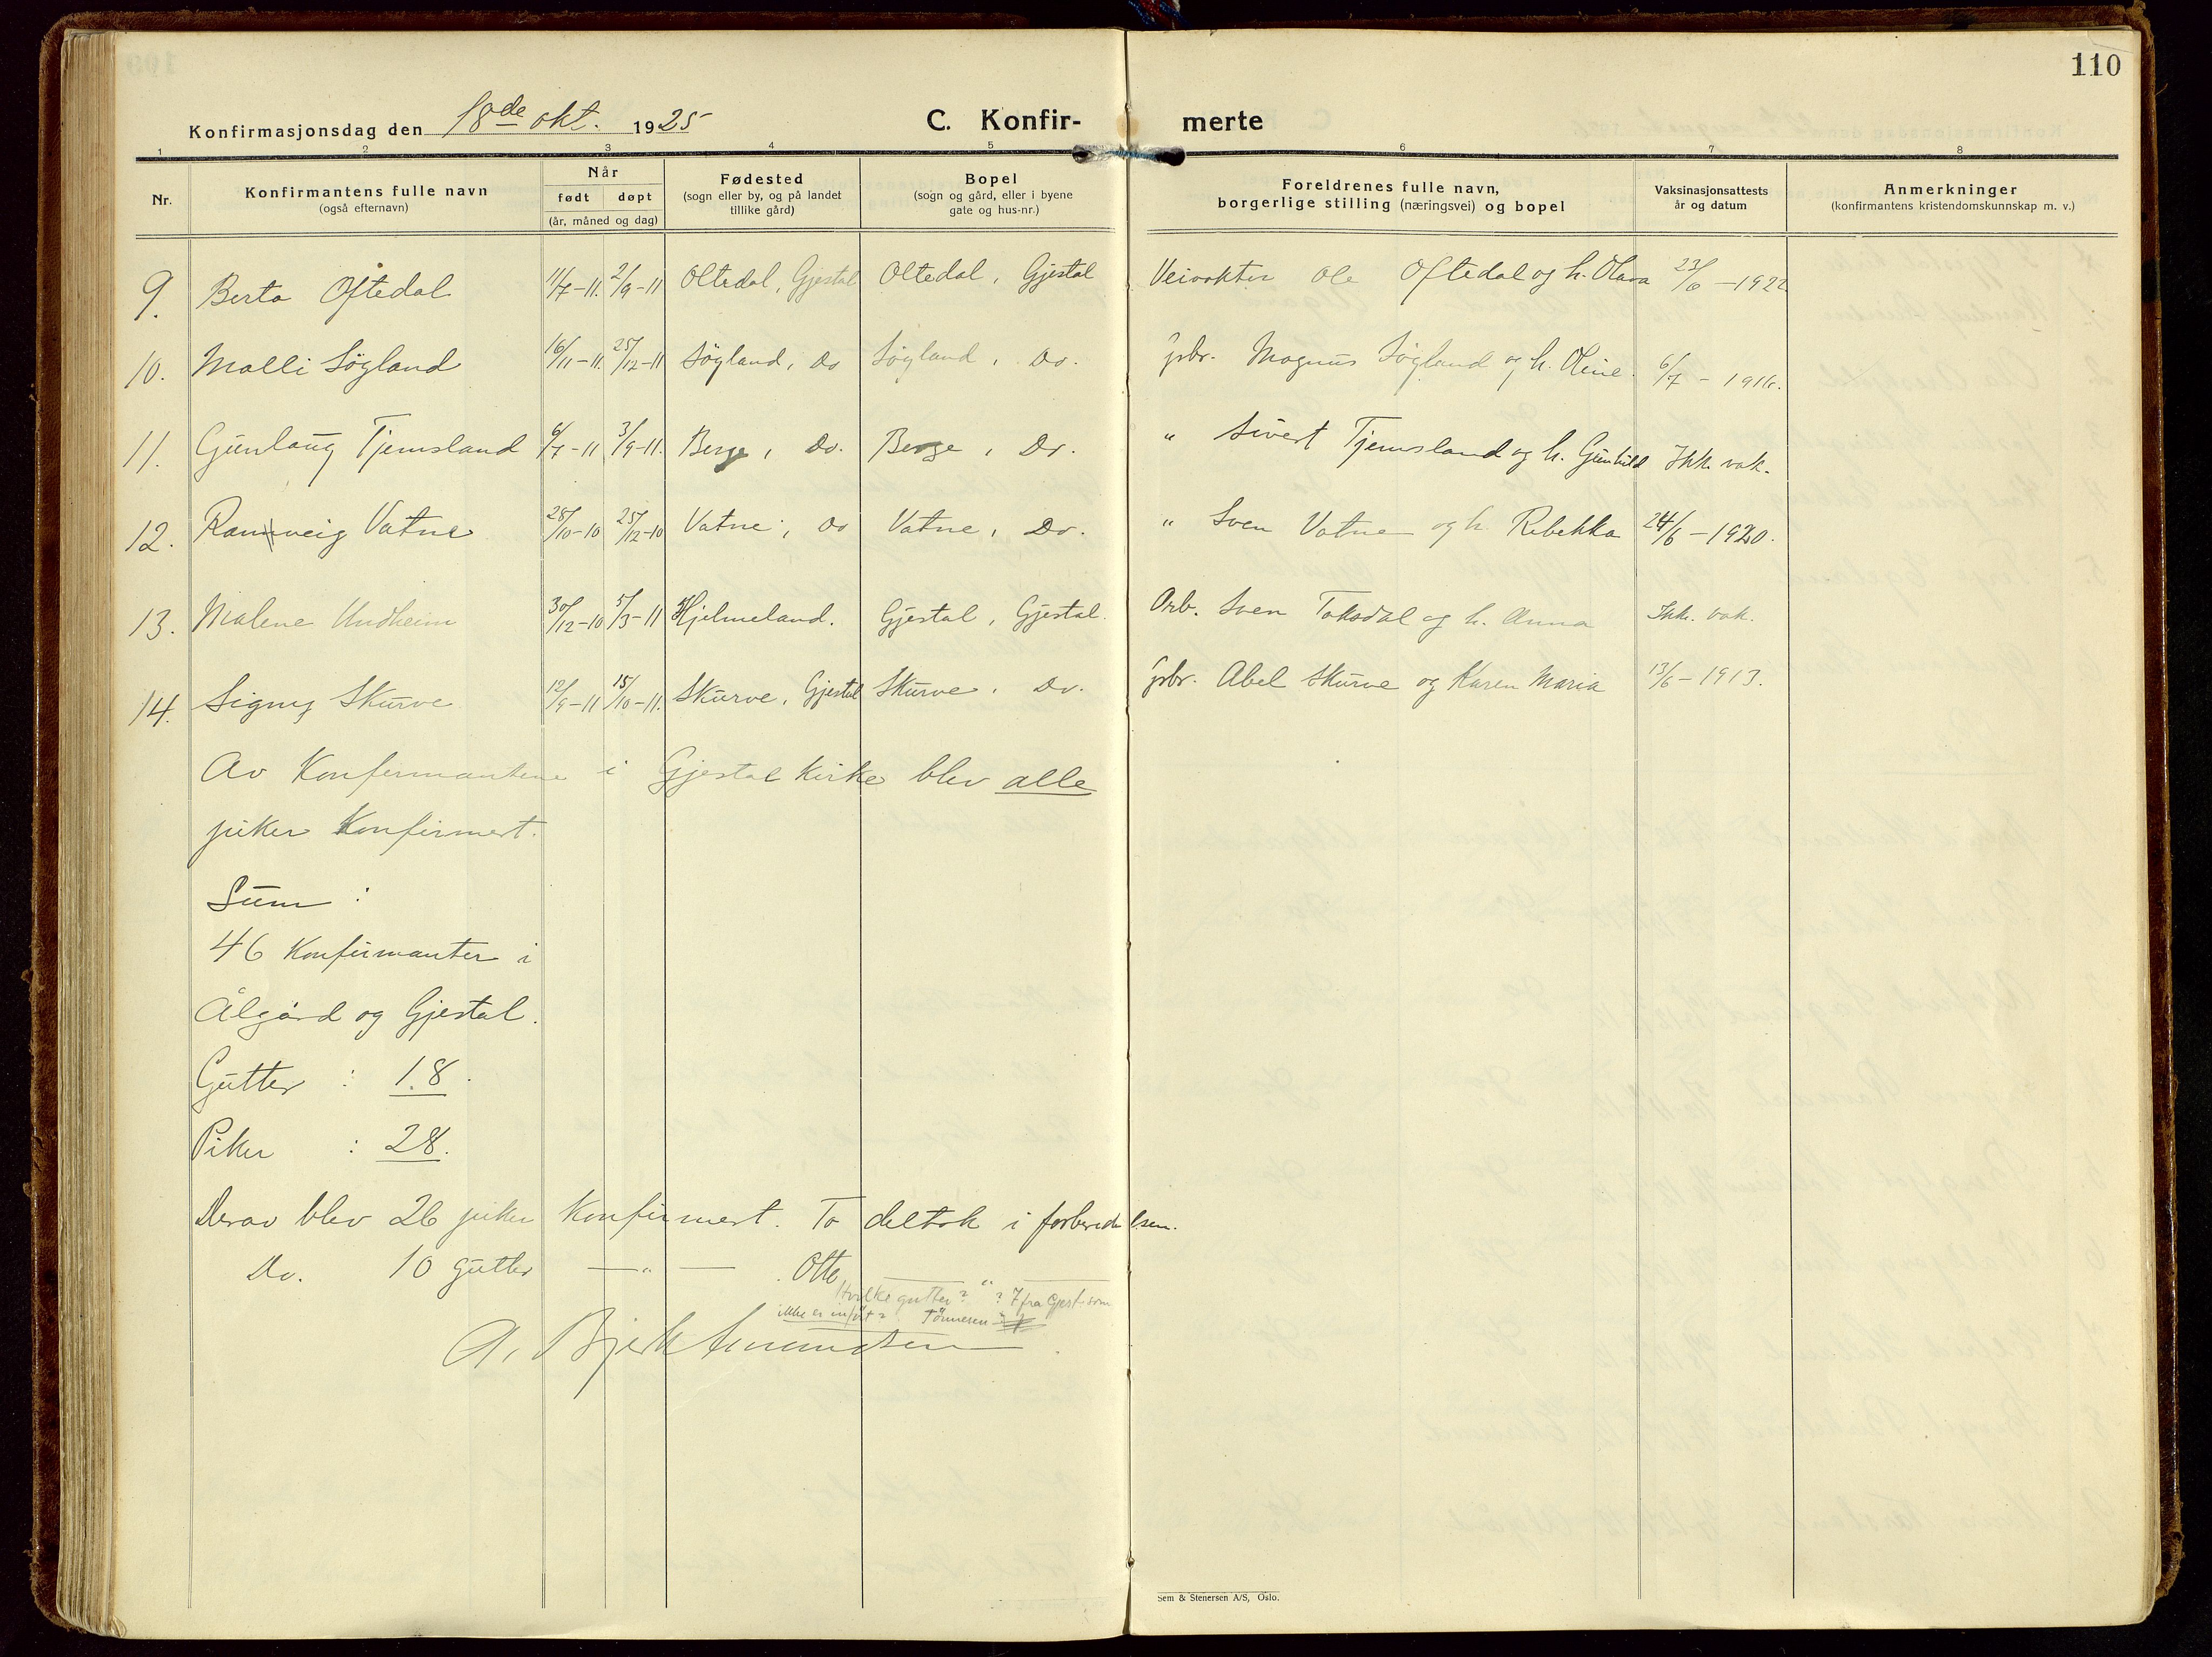 110
Konfirmasjonsdag den 18de okt. 1925 C. Konfir- merte
1 2 3 4 5 6 7 8
Nr. Konfirmantens fulle navn (også efternavn) Når født døpt (år, måned og dag) Fødested (sogn eller by, og på landet tillike gård) Bopel (sogn og gård, eller i byene gate og hus-nr.) Foreldrenes fulle navn, borgerlige stilling (næringsvei) og bopel Vaksinasjonsattests år og datum Anmerkninger (konfirmantens kristendomskunnskap m. v.)
9. Berta Oftedal 11/7-11. 2/9-11 Oltedal, Gjestal Oltedal, Gjestal Veivokter Ole Oftedal og h. Olava 23/6-1922
10. Malli Søgland 16/11-11. 25/12-11 Søgland, Do Søgland, Do. Gbr. Magnus Søgland og h. Oline. 6/7-1916.
11. Gunlaug Tjemsland 6/7-11 3/9-11. Berge, Do. Berge, Do. " Sivert Tjemsland og h. Gunhild Ikk. vak.
12. Ranveig Vatne 28/10-10 25/12-10 Vatne, Do Vatne, Do. " Sven Vatne og h. Rebekka 24/6-1920.
13. Malene Undheim 30/12-10 5/3-11 Hjelmeland. Gjestal, Gjestal. Arb. Sven Taksdal og h. Anna Ikk. vak.
14. Signy Skurve 12/9-11 15/10-11. Skurve, Gjestal Skurve, Do. Gbr. Abel Skurve og Karen Maria 13/6-1913.
Av Konfirmantene i Gjestal Kirke blev alle
piker Konfirmert.
Sum :
46 Konfirmanter i
Ålgård og Gjestal.
Gutter : 18.
Piker : 28.
Derav blev 26 piker Konfirmert. To deltok i forberedelsen.
Do. 10 gutter —"— Otte —"—
Hvilke gutter? ? 7 fra Gjest. som
ikke er innført? Tönnesen
A. Bjerk Amundsen
Sem & Stenersen A/S, Oslo.